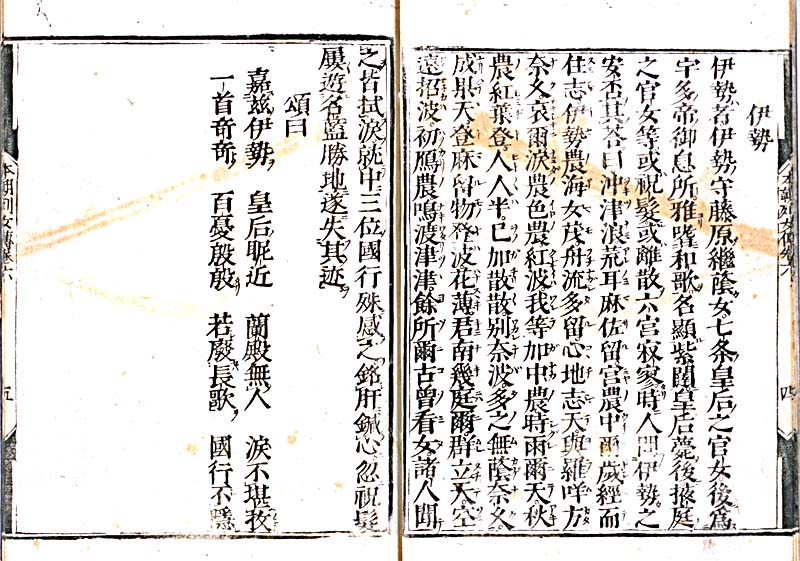 伊勢
伊勢者伊勢守藤原繼蔭女七条皇后之官女後為
宇多帝御息所雅嗜和歌名顯紫闈皇后薨後掖庭
之官女等或祝髮或離散六宮寂寥時人問伊勢之
安否其荅曰沖津浪荒耳麻佐留宮農中爾歲經而
住志伊勢農海女茂舟流多留心地志天與羅牟方
奈久哀爾淚農色農紅波我等加中農時雨爾天秋
農紅葉登人人半己加散散別奈波多之無蔭奈久
成果天登麻留物登波花薄君南幾庭爾群立天空
遠招波初鴈農鳴渡津津餘所爾古曾看女諸人聞
之皆拭淚就中三位國行殊感之銘肝鍼心忽祝髮
屢遊名藍勝地遂失其迹
頌曰
嘉茲伊勢 皇后昵近 蘭殿無人 淚不堪抆
一首奇奇 百憂殷殷 若廢長歌 國行不隱
本朝列女傳卷六
四
本朝列女傳卷六
五